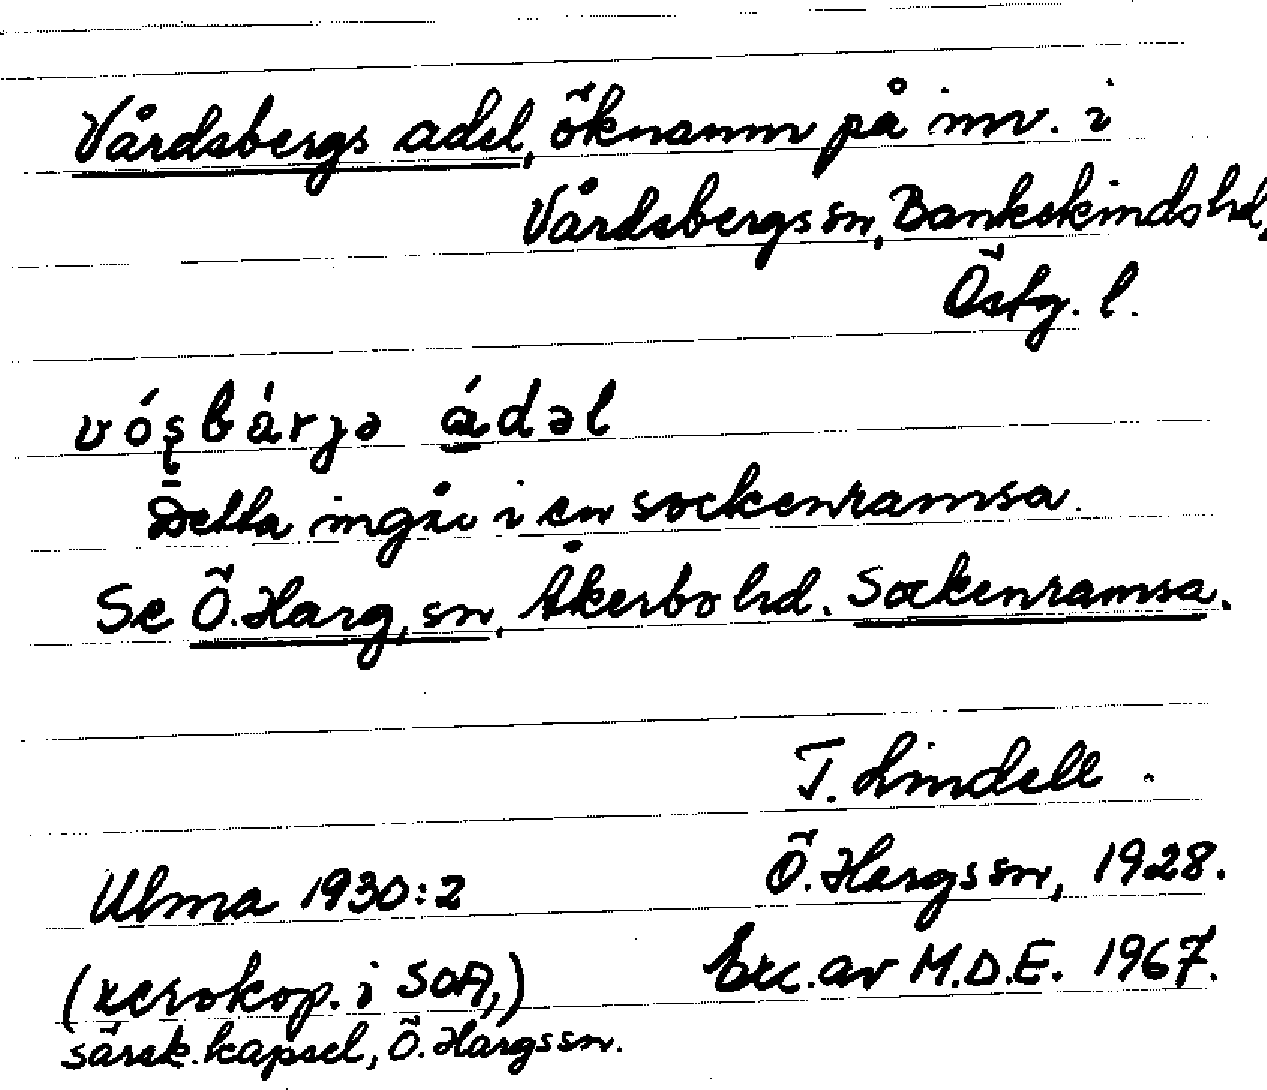 Vårdsbergs adel, öknamn på inv. i
Vårdsbergs sn, Bankekinds hd,
Östg. l.
vóşbárjə ádəl
Detta ingår i en sockenramsa.
Se Ö. Harg, sn, Åkerbo hd. Sockenramsa.
T. Lindell.
Ulma 1930:2
Ö. Hargs sn, 1928.
(xerokop. i SOA,)
Exc. av M.D.E. 1967.
särsk. kapsel, Ö. Hargs sn.